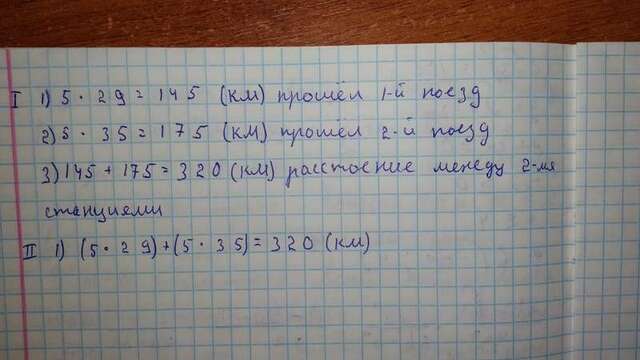 I 1) 5 · 29 = 145 (км) прошёл 1-й поезд
2) 5 · 35 = 175 (км) прошёл 2-й поезд
3) 145 + 175 = 320 (км) расстоение между 2-мя
станциями
II 1) (5 · 29) + (5 · 35) = 320 (км)